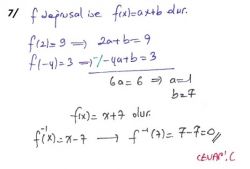 7/ f doğrusal ise f(x)=ax+b olur.
f(2)=9 ⟹ 2a+b=9
f(-4)=3 ⟹ -/-4a+b=3
6a=6 ⟹ a=1
b=7
f(x)=x+7 olur.
f⁻¹(x)=x-7 ⟶ f⁻¹(7)=7-7=0//
CEVAP: C